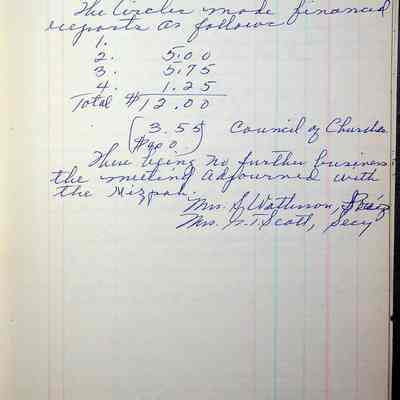 The Circles made financial
reports as follows
1.
2. 5.00
3. 5.75
4. 1.25
Total $12.00
(3.55) Council of Churches
There being no further business
the meeting adjourned with
the Mizpah.
Mrs. S. Watterson,
Mrs. G. T. Scott, Secy